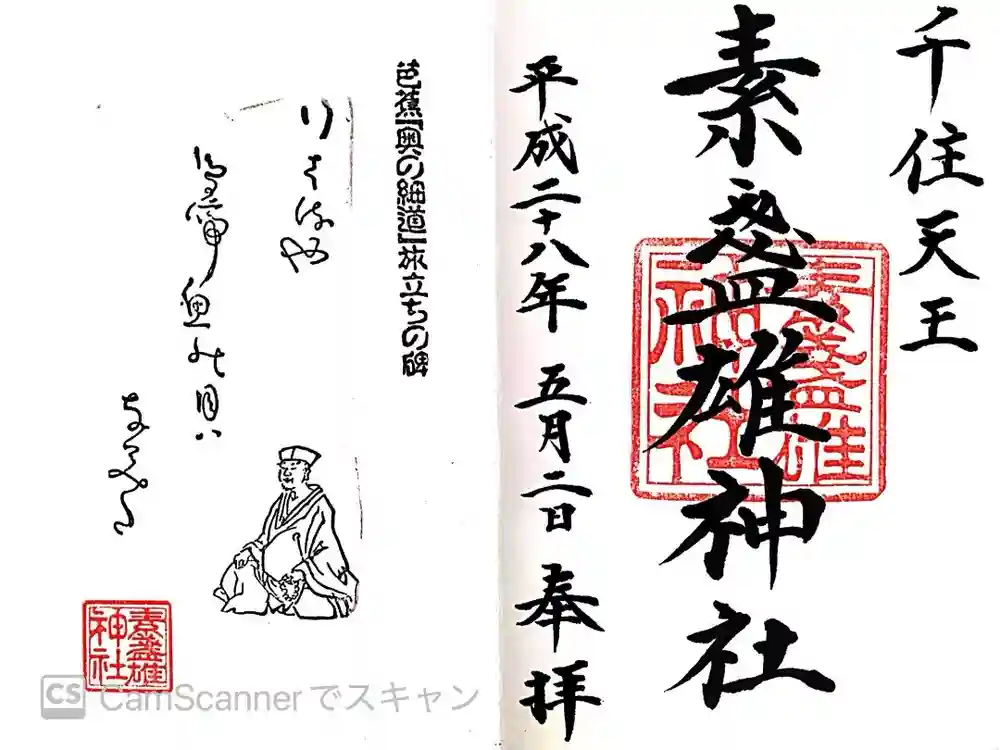 千住天王
素盞雄神社
素盞雄
神社
平成二十八年 五月二日 奉拝
芭蕉『奥の細道』旅立ちの碑
行はるや
鳥啼魚の目ハ
なみた
素盞雄
神社
CS CamScannerでスキャン